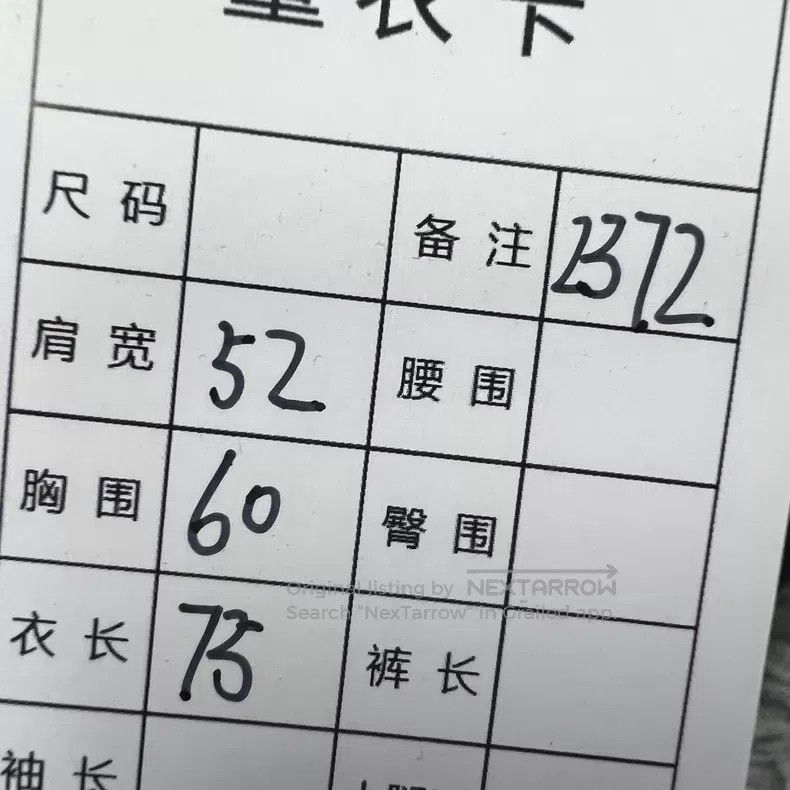 量衣卡
尺码 备注 2372
肩宽 52 腰围
胸围 60 臀围
Original listing by NEXTARROW
Search "NexTarrow" in Grailed app
衣长 75 裤长
袖长